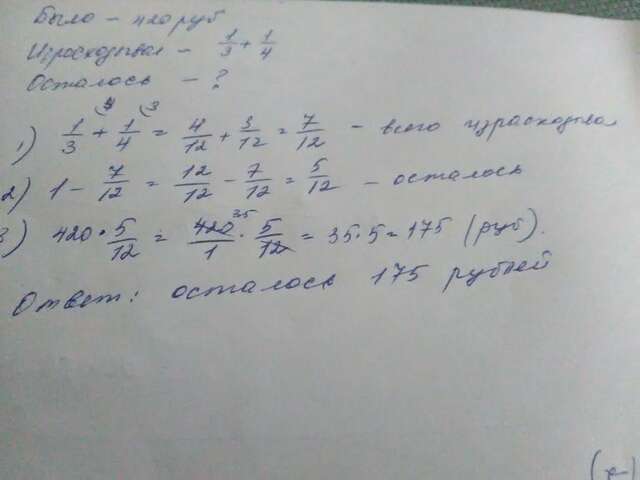 Было - 420 руб
Израсходовал - 1/3 + 1/4
Осталось - ?
1) 1/3 (4 + 1/4 (3 = 4/12 + 3/12 = 7/12 - всего израсходовал
2) 1 - 7/12 = 12/12 - 7/12 = 5/12 - осталось
3) 420 · 5/12 = 420/1 35 · 5/12 = 35·5 = 175 (руб).
Ответ: осталось 175 рублей